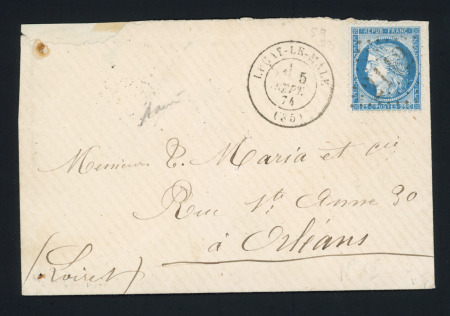 REPUB. FRANC.
LUÇAY-LE-MALE
5
SEPT
74
(35)
Messieurs E. Maria et cie
Rue Ste Anne 30
à Orléans
(Loiret)